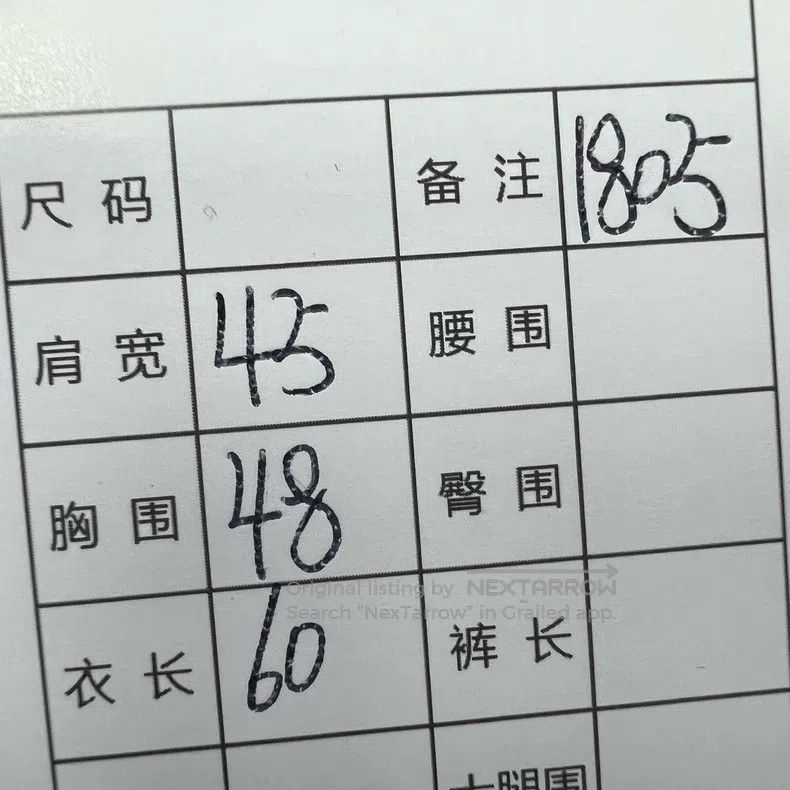 尺码 备注 1805
肩宽 45 腰围
胸围 48 臀围
Original listing by NEXTARROW
Search "NexTarrow" in Grailed app.
衣长 60 裤长
大腿围